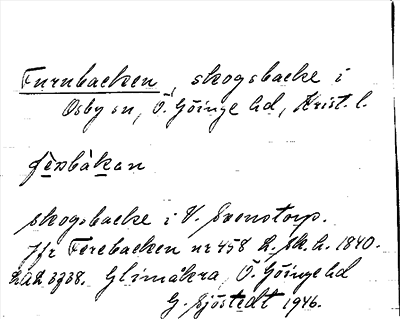 Furubacken, skogsbacke i
Osby sn, Ö. Göinge hd, Krist. l.
skogsbacke i V. Svenstorp.
Jfr Ferebacken nr 458 L. sk. h. 1840.
Glimåkra, Ö. Göinge hd
G. Sjöstedt 1946.